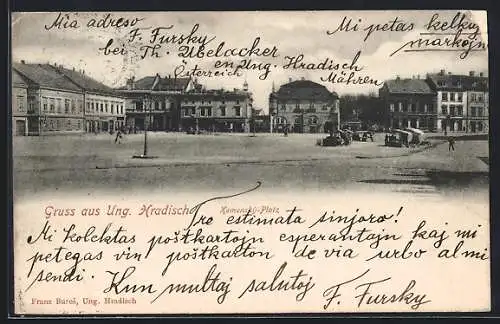 Mia adreso
F. Fursky
bei Th. Übelacker
en Ung. Hradisch
Österreich
Mähren
Mi petas kelkuj
markojn
Gruss aus Ung. Hradisch
Komenský-Platz
tre estimata sinjoro!
Mi kolektas poŝtkartojn esperantajn kaj mi
petegas vin poŝtkarton de via urbo al mi
sendi. Kun multaj salutoj
F. Fursky
Franz Bureš, Ung. Hradisch